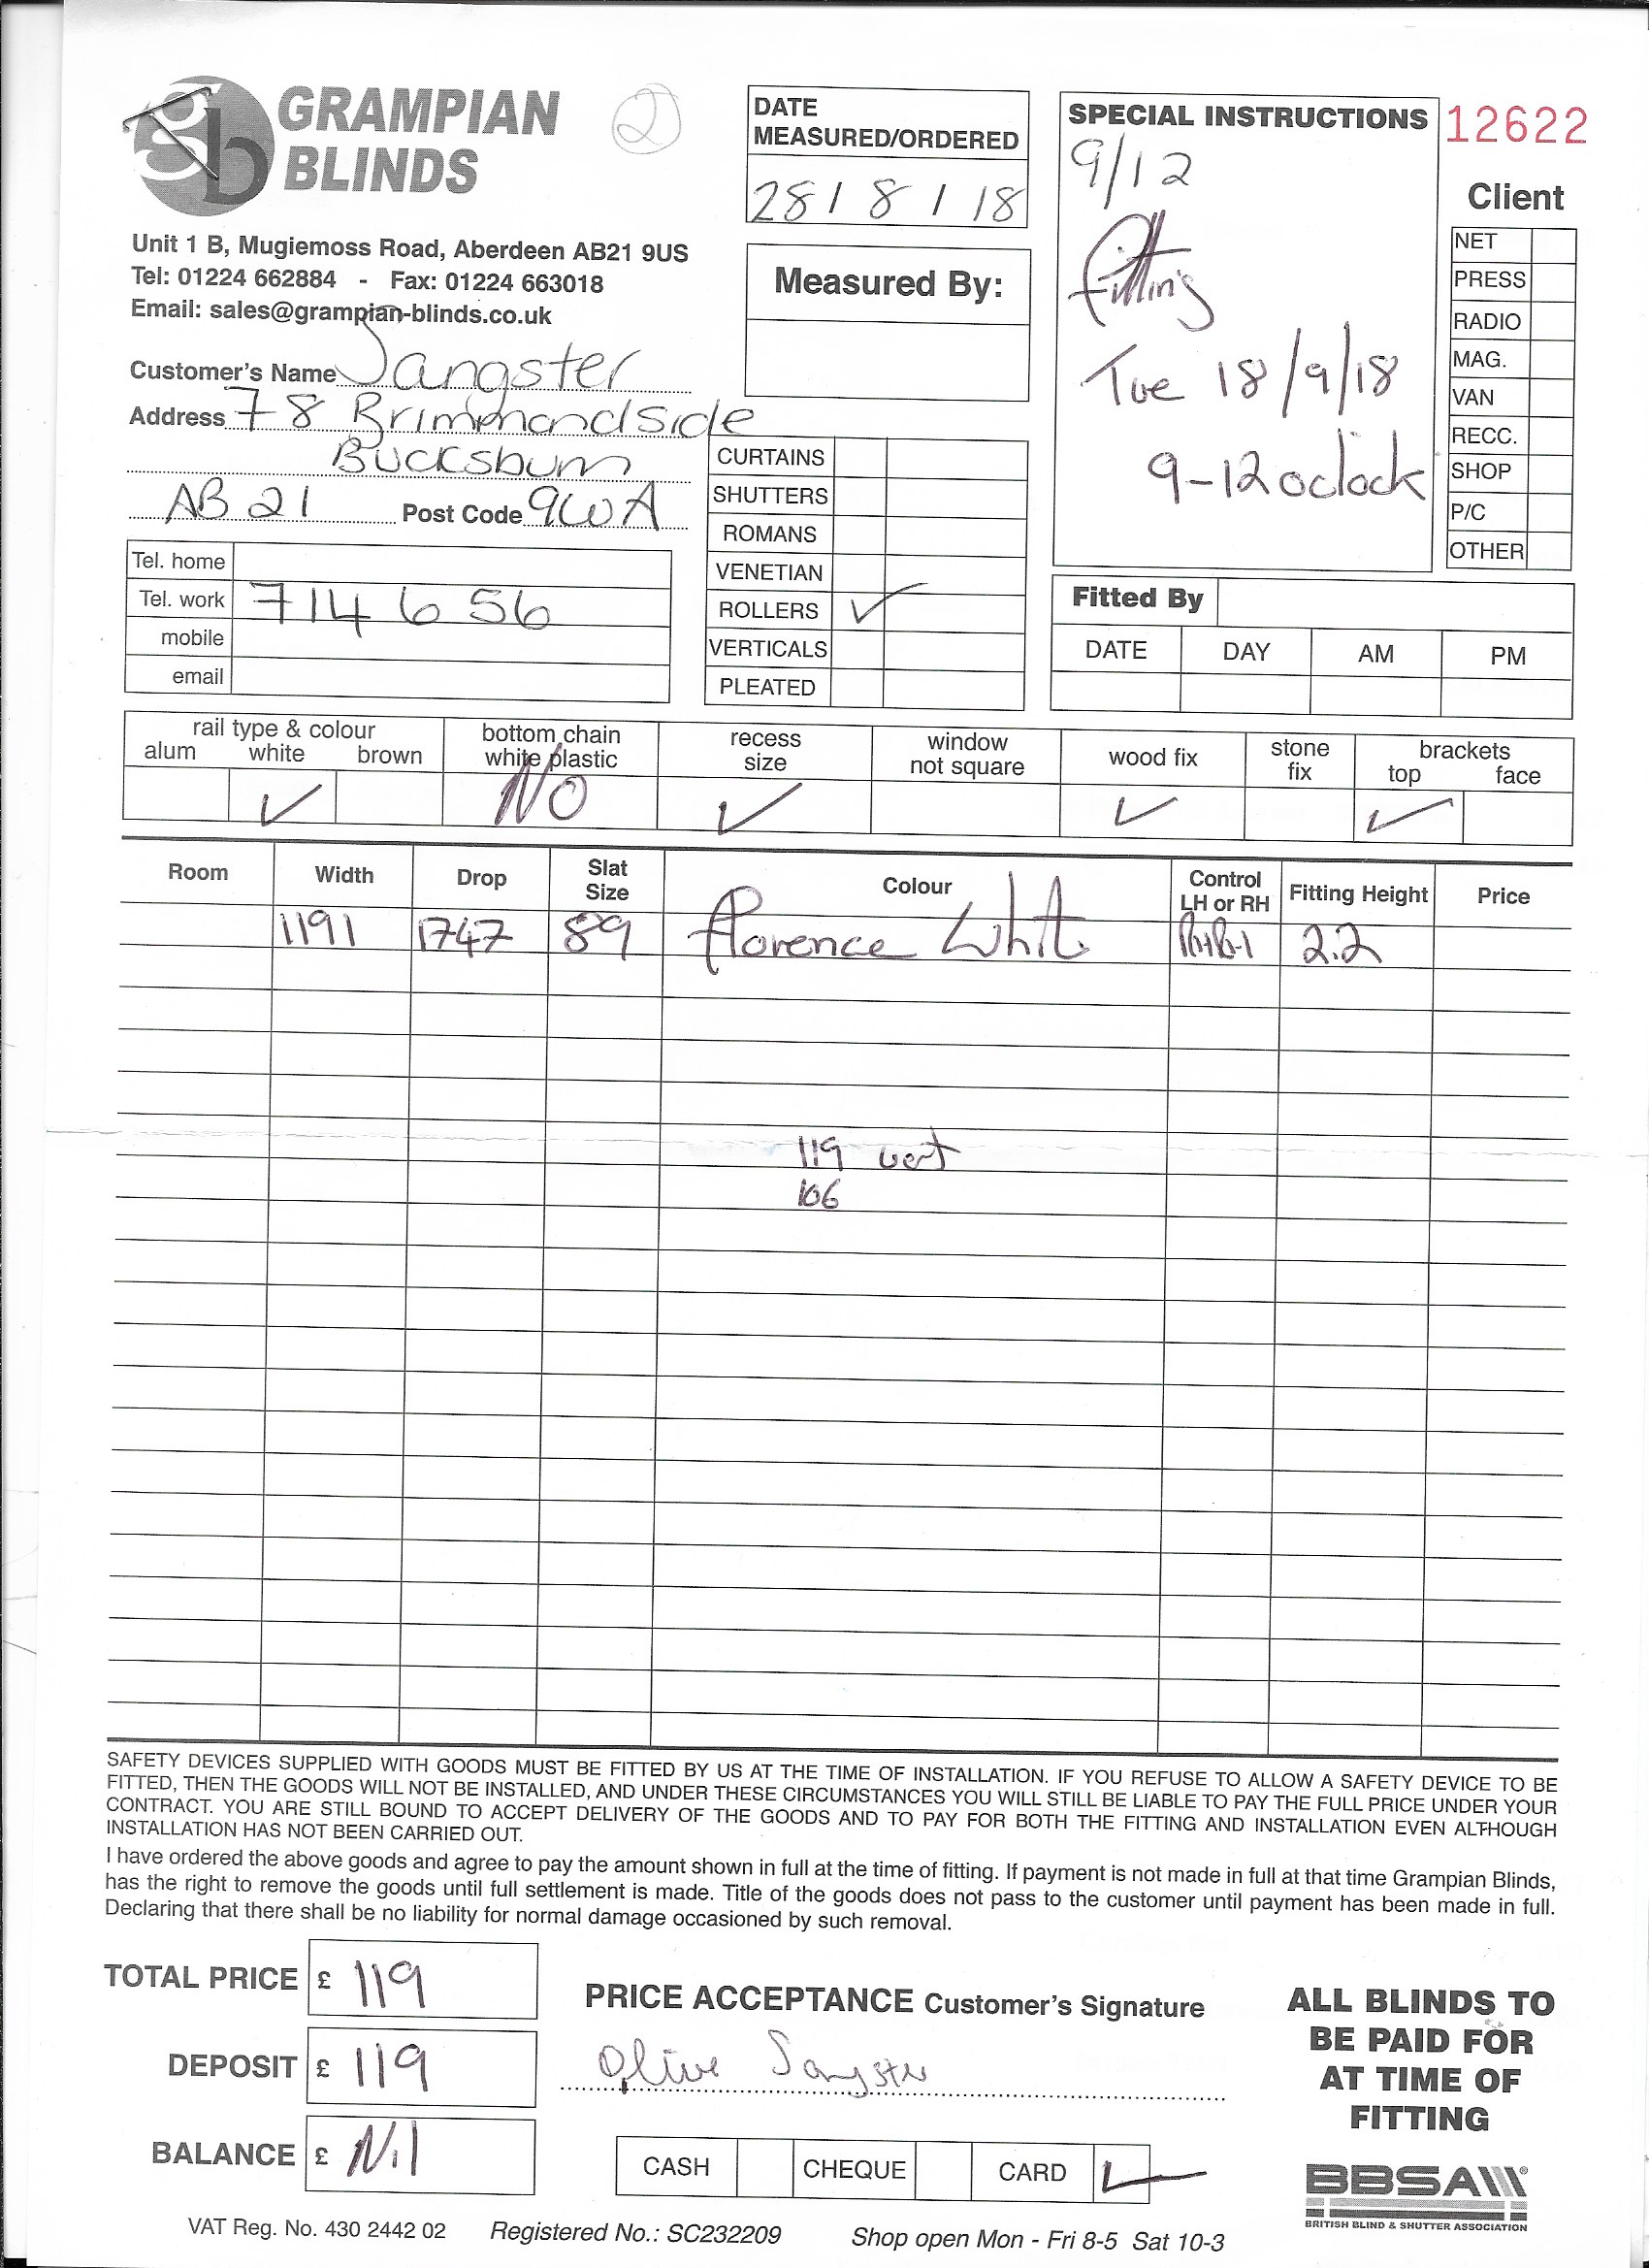 gb GRAMPIAN BLINDS
2
Unit 1 B, Mugiemoss Road, Aberdeen AB21 9US
Tel: 01224 662884 - Fax: 01224 663018
Email: sales@grampian-blinds.co.uk
Customer's Name Sangster
Address 78 Brimmondside
Bucksburn
AB21 Post Code 9WA
Tel. home
Tel. work 714656
mobile
email
DATE
MEASURED/ORDERED
28/8/18
Measured By:
CURTAINS
SHUTTERS
ROMANS
VENETIAN
ROLLERS ✓
VERTICALS
PLEATED
SPECIAL INSTRUCTIONS
9/12
fitting
Tue 18/9/18
9-12 oclock
12622
Client
NET
PRESS
RADIO
MAG.
VAN
RECC.
SHOP
P/C
OTHER
Fitted By
DATE DAY AM PM
rail type & colour
alum white brown
✓
bottom chain
white plastic
NO
recess
size
✓
window
not square
wood fix
✓
stone
fix
brackets
top face
✓
Room Width Drop Slat Size Colour Control LH or RH Fitting Height Price
1191 1747 89 Florence White 2.2
119 vert
106
SAFETY DEVICES SUPPLIED WITH GOODS MUST BE FITTED BY US AT THE TIME OF INSTALLATION. IF YOU REFUSE TO ALLOW A SAFETY DEVICE TO BE
FITTED, THEN THE GOODS WILL NOT BE INSTALLED, AND UNDER THESE CIRCUMSTANCES YOU WILL STILL BE LIABLE TO PAY THE FULL PRICE UNDER YOUR
CONTRACT. YOU ARE STILL BOUND TO ACCEPT DELIVERY OF THE GOODS AND TO PAY FOR BOTH THE FITTING AND INSTALLATION EVEN ALTHOUGH
INSTALLATION HAS NOT BEEN CARRIED OUT.
I have ordered the above goods and agree to pay the amount shown in full at the time of fitting. If payment is not made in full at that time Grampian Blinds,
has the right to remove the goods until full settlement is made. Title of the goods does not pass to the customer until payment has been made in full.
Declaring that there shall be no liability for normal damage occasioned by such removal.
TOTAL PRICE £ 119
DEPOSIT £ 119
BALANCE £ Nil
PRICE ACCEPTANCE Customer's Signature
Olive Sangster
CASH CHEQUE CARD ✓
ALL BLINDS TO
BE PAID FOR
AT TIME OF
FITTING
BBSA
BRITISH BLIND & SHUTTER ASSOCIATION
VAT Reg. No. 430 2442 02 Registered No.: SC232209 Shop open Mon - Fri 8-5 Sat 10-3